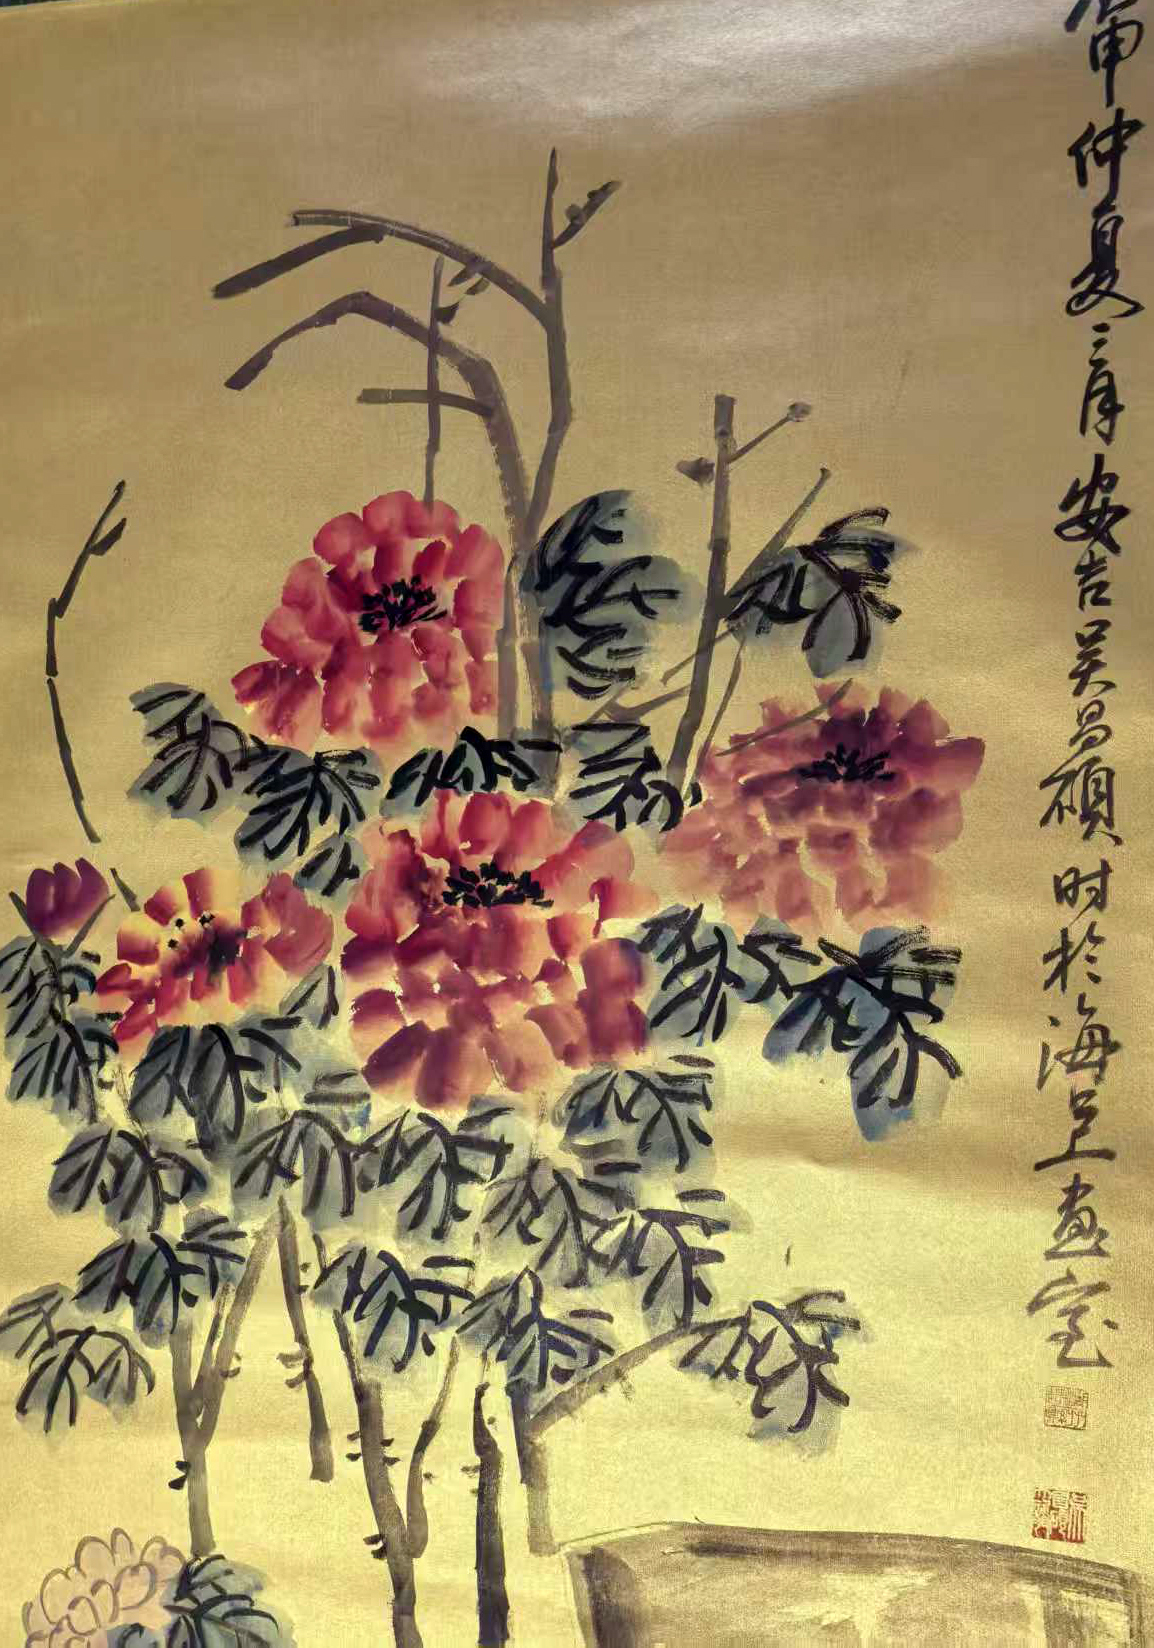 申仲夏之月安吉吴昌硕时於海上画室